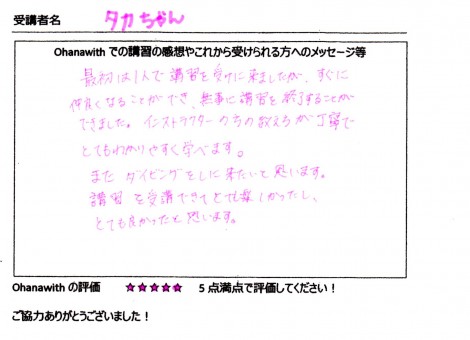 受講者名 タカちゃん
Ohanawith での講習の感想やこれから受けられる方へのメッセージ等
最初は1人で講習を受けに来ましたが、すぐに
仲良くなることができ、無事に講習を終了することが
できました。インストラクターの方の教え方が丁寧で
とてもわかりやすく学べます。
また ダイビングをしに来たいと思います。
講習 を受講できてとても楽しかったし、
とても良かったと思います。
Ohanawith の評価 ★★★★★ 5 点満点で評価してください！
ご協力ありがとうございました！